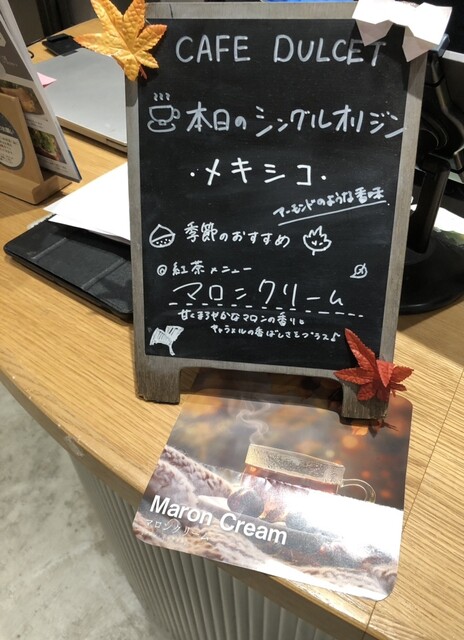 CAFE DULCET
本日のシングルオリジン
・メキシコ・
アーモンドのような香味
季節のおすすめ
@紅茶メニュー
マロンクリーム
甘くまろやかなマロンの香りに
キャラメルの香ばしさをプラス♪
Maron Cream
マロンクリーム